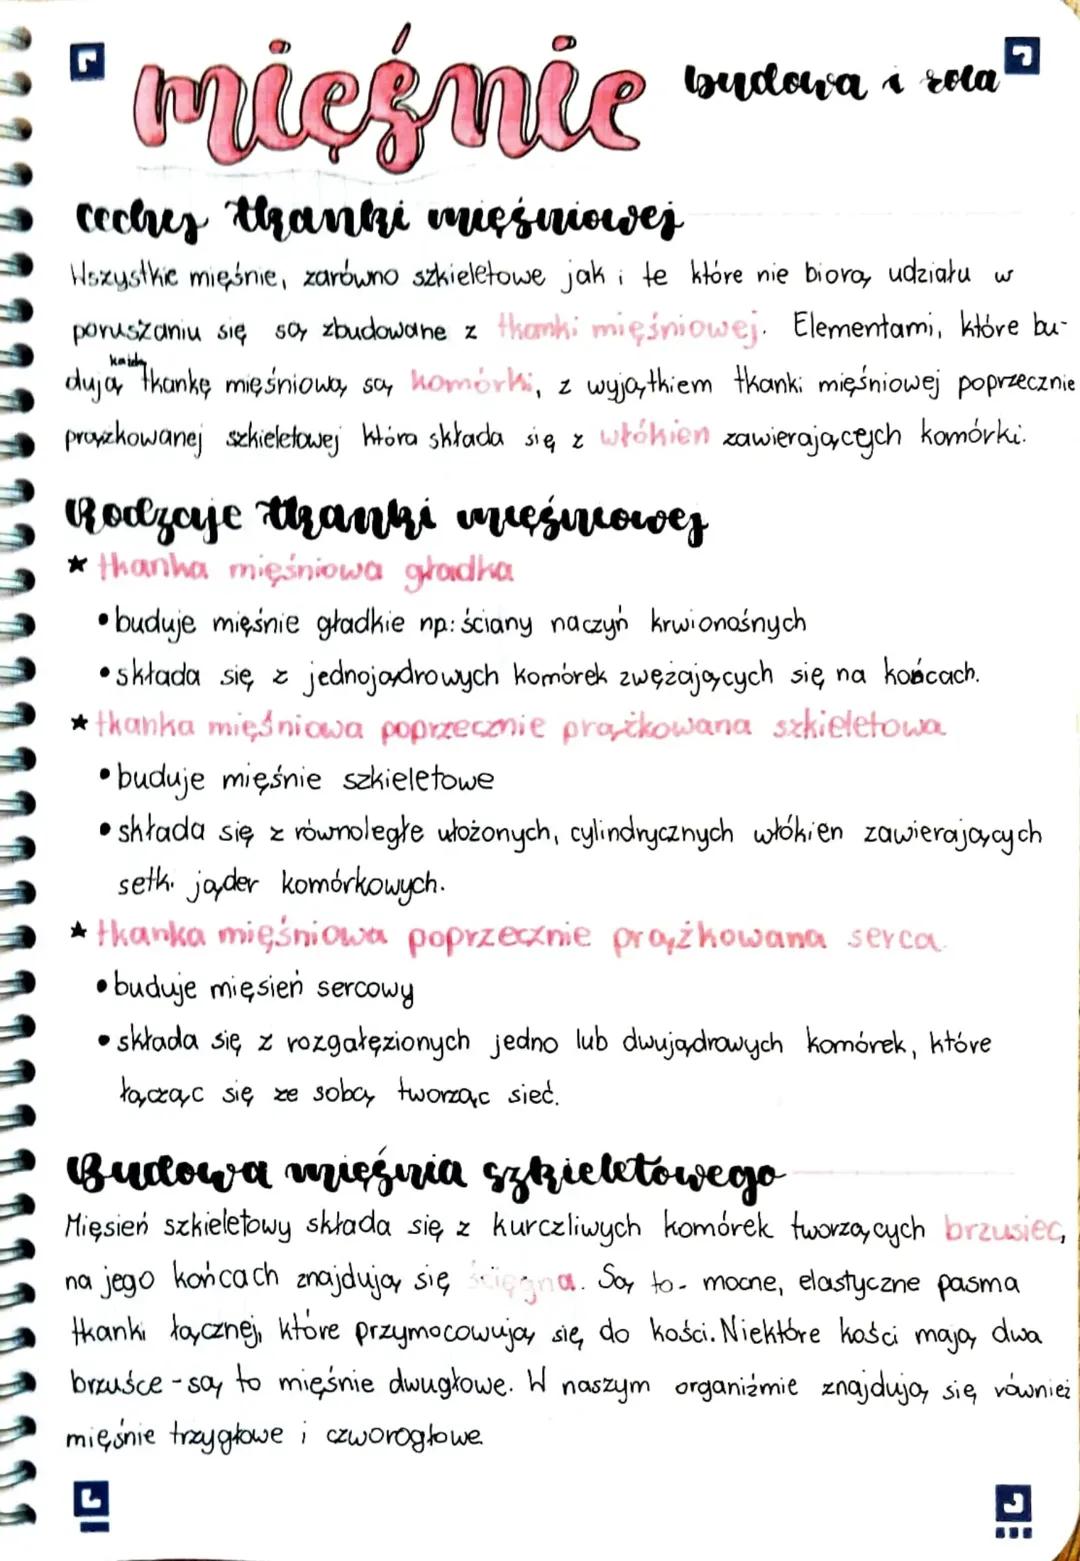 mięśnie budowa i rola
cechy tkanki mięśniowej
Wszystkie mięśnie, zarówno szkieletowe jak i te które nie biorą udziału w
poruszaniu się są zbudowane z tkanki mięśniowej. Elementami, które bu-
każdą
dują tkankę mięśniową są komórki, z wyjątkiem tkanki mięśniowej poprzecznie
prążkowanej szkieletowej która składa się z włókien zawierających komórki.
Rodzaje tkanki mięśniowej
★ tkanka mięśniowa gładka
• buduje mięśnie gładkie np: ściany naczyń krwionośnych
• składa się z jednojądrowych komórek zwężających się na końcach.
★ tkanka mięśniowa poprzecznie prążkowana szkieletowa
• buduje mięśnie szkieletowe
• składa się z równoległe ułożonych, cylindrycznych włókien zawierających
setki jąder komórkowych.
★ tkanka mięśniowa poprzecznie prążkowana serca.
• buduje mięsień sercowy
• składa się z rozgałęzionych jedno lub dwujądrowych komórek, które
łącząc się ze sobą tworząc sieć.
Budowa mięśnia szkieletowego
Mięsień szkieletowy składa się z kurczliwych komórek tworzących brzusiec,
na jego końcach znajdują się ścięgna. Są to- mocne, elastyczne pasma
tkanki łącznej, które przymocowują się do kości. Niektóre kości mają dwa
brzuśce - są to mięśnie dwugłowe. W naszym organiźmie znajdują się również
mięśnie trzygłowe i czworogłowe.